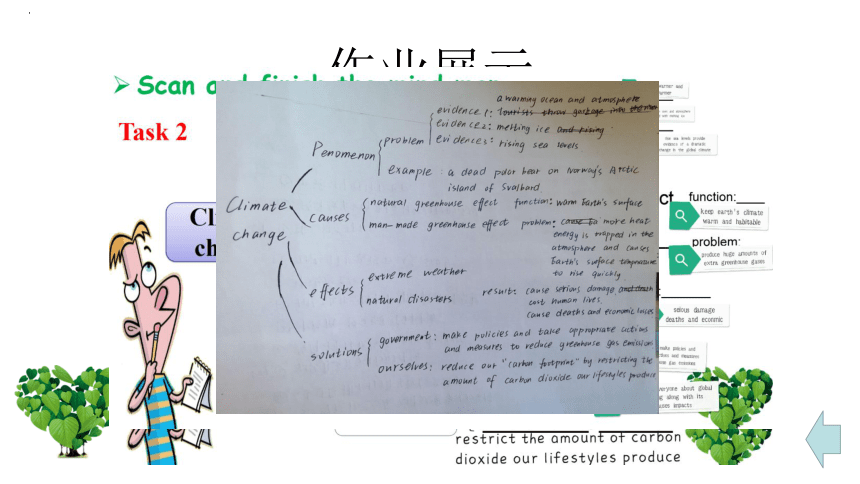 作业展示
Scan and finish the mind map
Task 2
Cl
ch
Climate
change
Penomenon
problem
a warming ocean and atmosphere
evidence 1: tourists throw garbage into the
evidence 2: melting ice and rising
evidence 3: rising sea levels
example: a dead polar bear on Norway's Arctic
island of Svalbard
causes
natural greenhouse effect function: warm Earth's surface
man-made greenhouse effect problem: cause to more heat
energy is trapped in the
atmosphere and causes
Earth's surface temperature
to rise quickly.
effects
extreme weather
natural disasters
result: cause serious damage and death
cost human lives.
cause deaths and economic losses
solutions
government: make policies and take appropriate actions
and measures to reduce greenhouse gas emission
ourselves: reduce our "carbon footprint" by restricting the
amount of carbon dioxide our lifestyles produce
function:
keep earth's climate
warm and habitable
problem:
produce huge amounts of
extra greenhouse gases
serious damage
deaths and economic
everyone about global
along with its
impacts
restrict the amount of carbon
dioxide our lifestyles produce